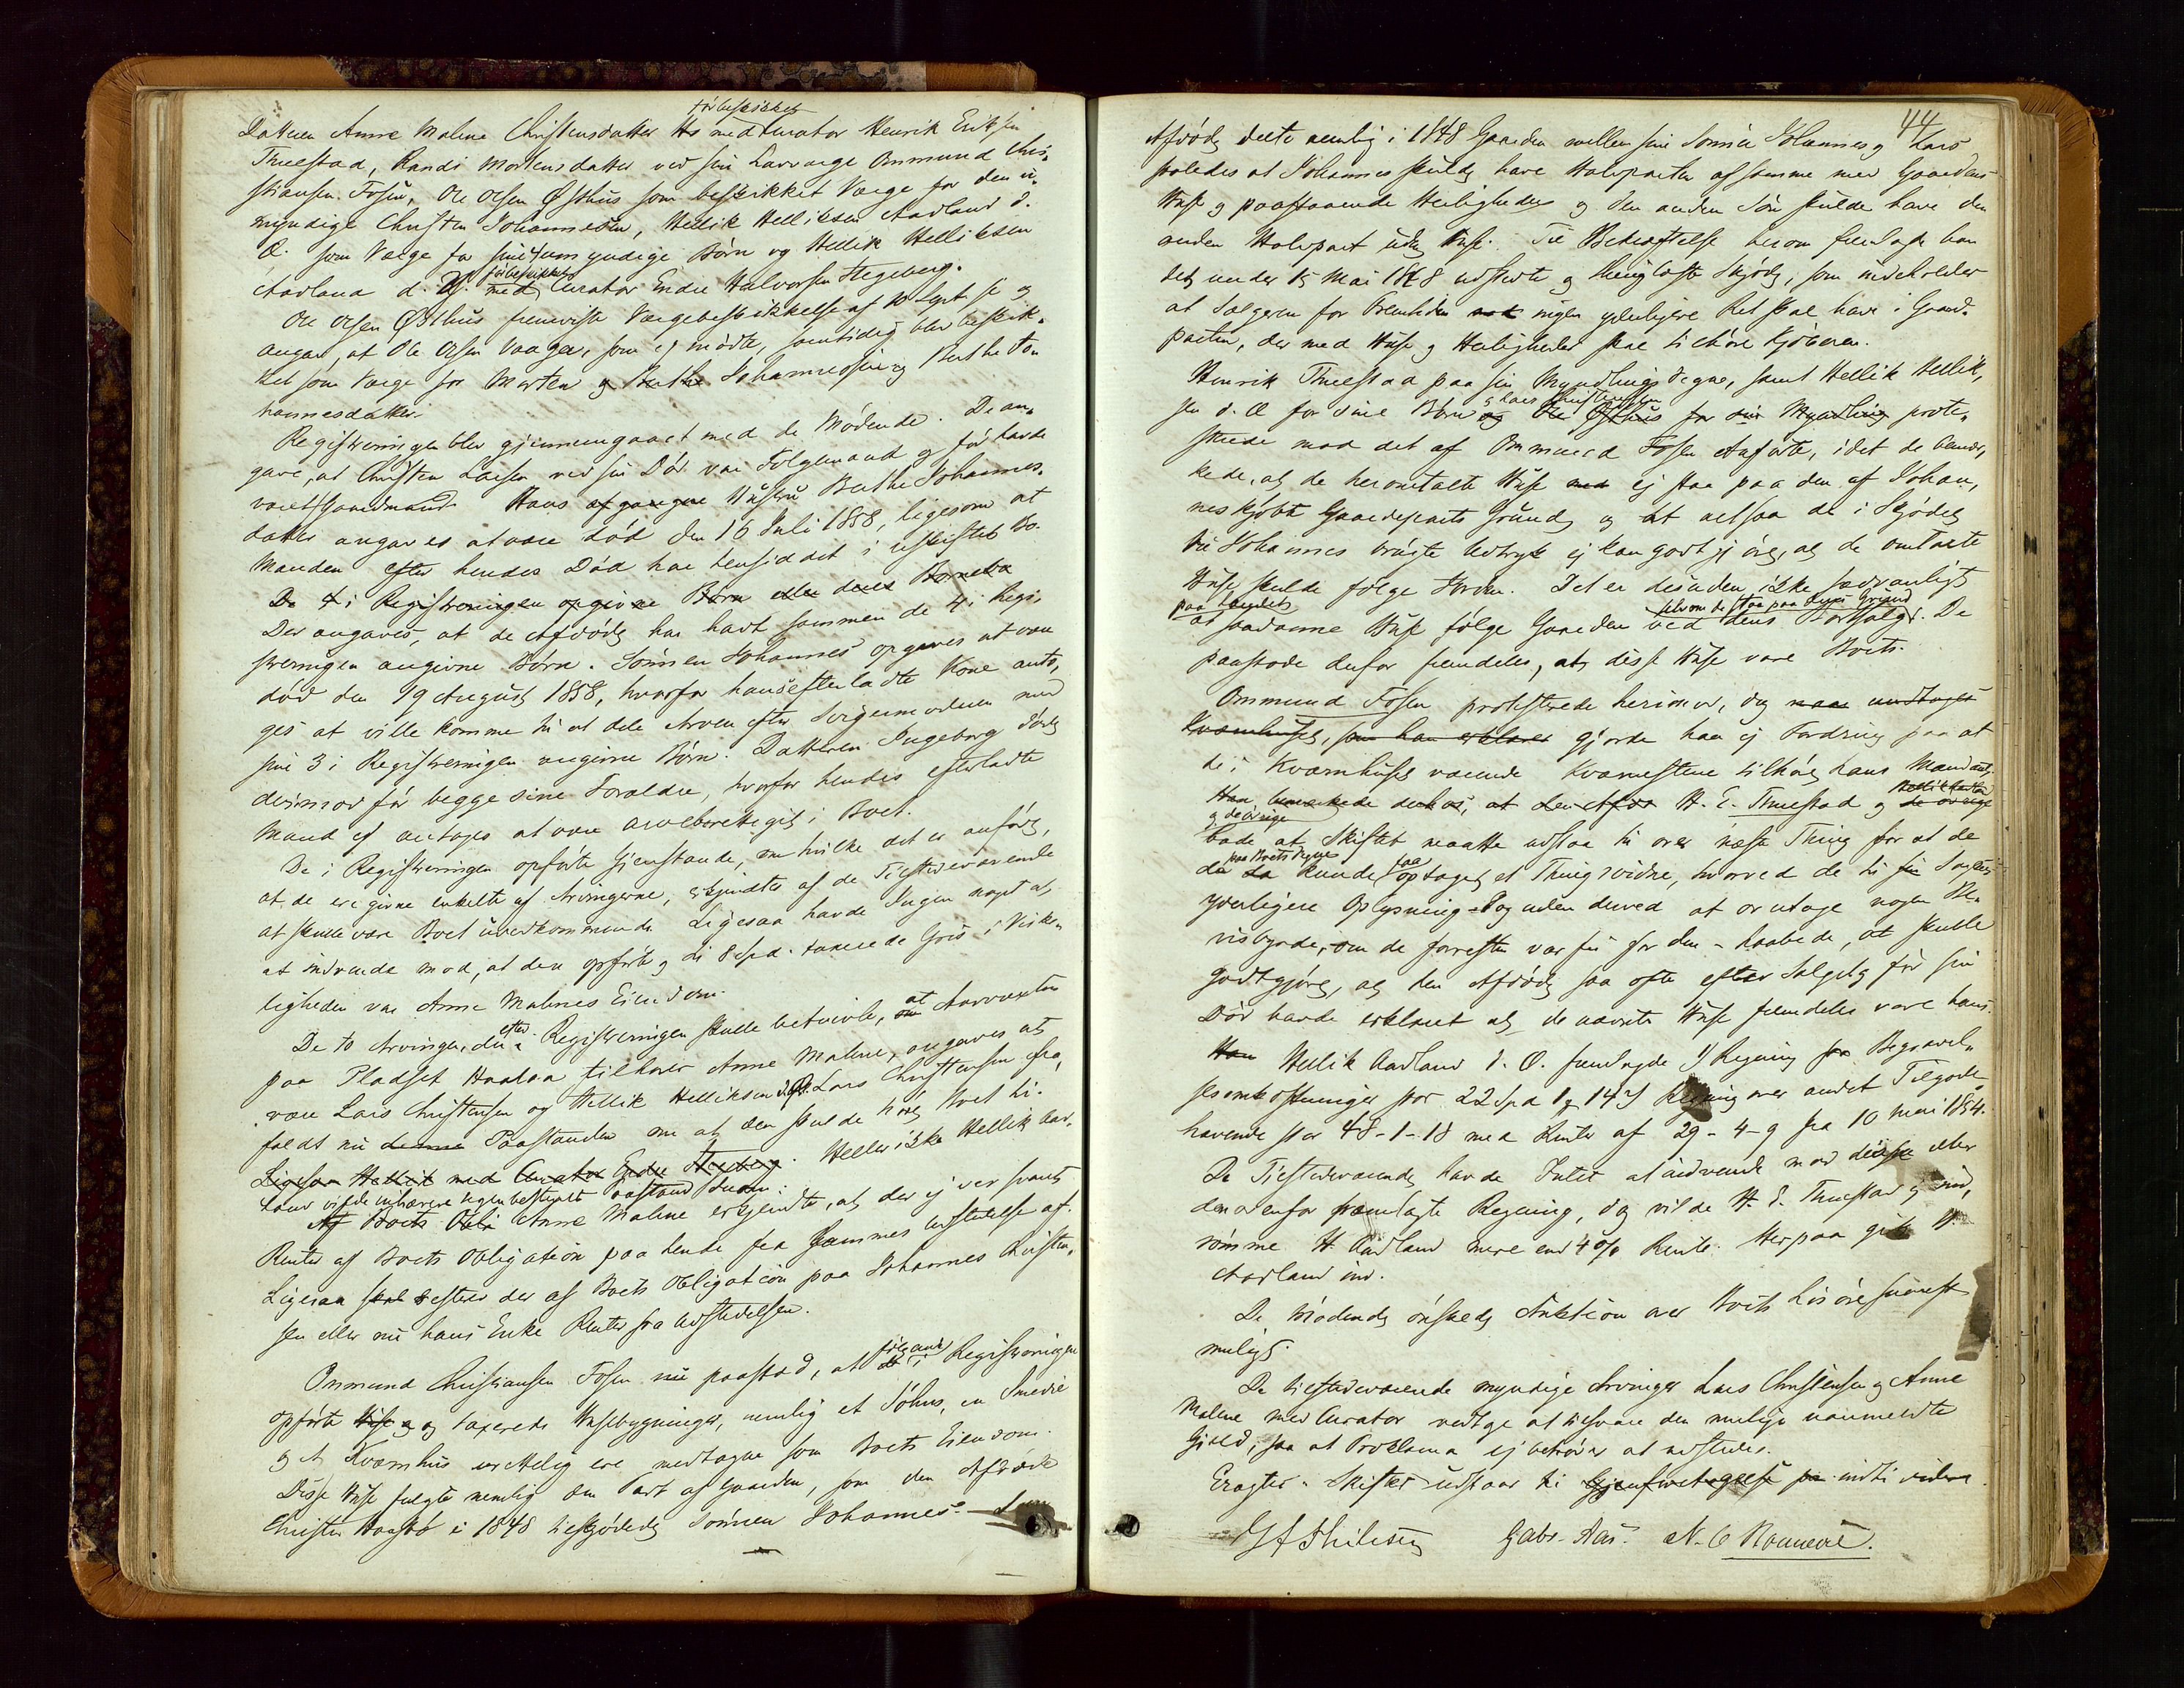 førbeskikket
Datteren Anne Malene Christensdatter med Curator Henrik Eriksen
Thuestad, Randi Mortensdatter ved sin Laugværge Ommund Chri-
stiansen Fosen, Ole Olsen Østhus som beskikket Værge for den u-
myndige Christen Johannesen, Hellik Helliksen Aadland d.
Æ. som Værge for sine umyndige Børn og Hellik Helliksen
førbeskikket
Aadland d. Y. med Curator Endre Halvorsen Stegeberg.
Ole Olsen Østhus fremviste Værgebeskikkelse af 10 Sept. og
angav, at Ole Olsen Vaage, som ej mødte, samtidig blev beskik-
ket som Værge for Morten og Berthe Johannesen og Berthe Jo-
hannesdatter.
Registreringen blev gjennemgaaet med de Mødende. De an-
gave, at Christen Larsen ved sin Død var Folgemand og før havde
været Gaardmand. Hans afgangne Hustru Berthe Johannes-
datter angaves at være død den 16 Juli 1858, ligesom at
Manden efter hendes Død har hensiddet i uskiftet Bo.
De 4 i Registreringen opgivne Børn eller deres Børneba
Der angaves, at de Afdøde har havt sammen de 4 i Regi-
streringen angivne Børn. Sønnen Johannes opgaves at være
død den 19 August 1858, hvorfor hans efterladte Kone anto-
ges at ville komme til at dele Arven efter Svigermoderen med
sine 3 i Registreringen angivne Børn. Datteren Ingeborg døde
derimod før begge sine Forældre, hvorfor hendes efterladte
Mand ej antages at være arveberettiget i Boet.
De i Registreringen opførte Gjenstande, om hvilke det er anført,
at de ere givne enkelte af Arvingerne, erkjendtes af de Tilstedeværende
at skulle være Boet uvedkommende. Ligesaa havde Ingen noget at
at indvende mod, at den opførte og til 8 Spd. taxerede Gris i Virke-
ligheden var Anne Malenes Eiendom.
De to Arvinger, der efter Registreringen skulle betvivle, at Aarvæxten
paa Pladset Haaland tilhører Anne Malene, angaves at
være Lars Christensen og Hellik Helliksen d. Æ. Lars Christensen fra-
faldt nu denne Paastanden om at den skulde høre Boet til.
Ligesaa Hellik med Curator Endre Stegeberg. Hellerikke Hellik Aad-
land vilde nedlægge nogen bestemt Paastand herom.
Af Boets Obli Anne Malene erkjendte, at der ej var svaret
Renter af Boets Obligation paa hende fra sammes Udstedelse af.
Ligesaa skal resterer der af Boets Obligation paa Johannes Christen-
sen eller nu hans Enke Renter fra Udstedelsen.
Ommund Christiansen Fosen nu paastod, at følgende i Registreringen
opførte Huse og og taxerede Husebygninger, nemlig et Søhus, en Smedie
og et Kvernhus urettelig ere medtagne som Boets Eiendom.
Disse Huse fulgte nemlig den Part af Gaarden, som den Afdøde
Christen Haastø i 1848 tilskjødede Sønnen Johannes.
44
Afdøde delte nemlig i 1848 Gaarden mellem sine Sønner Johannes og Lars
saaledes at Johannes skulde have Halvparten af samme med Gaardens
Huse og paastaaende Herligheder og den anden Søn skulde have den
anden Halvpart uden Huse. Til Bekræftelse herom fremlagde han
det under 15 Mai 1848 udstedte og thinglæste Skjøde, som indeholder
at Sælgeren for Fremtiden ingen yderligere Ret skal have i Gaard-
parten, der med Huse og Herligheder skal tilhøre Kjøberen.
Henrik Thuestad paa sin Myndlings Vegne, samt Hellik Hellik-
og Lars Christensen
sen d. Æ for sine Børn og Ole Østhus for sin Myndling prote-
sterede mod det af Ommund Fosen Anførte, idet de bemær-
kede, at de heromtalte Huse ej staa paa den af Johan-
nes kjøbte Gaardeparts Grund og at altsaa de i Skjødet
til Johannes brugte Udtryk ej kan godtgjøre, at de omtalte
Huse skulde følge Jorden. Det er desuden ikke sædvanligt
paa Landet selvom de staa paa deres Grund
at saadanne Huse følge Gaarden ved dens Bortsalg. De
paastode derfor fremdeles, at disse Huse vare Boets.
Ommund Fosen protesterede herimod, dog maae undtages
Kværnhuset, som han erklærer gjorde han ej Fordring paa at
de i Kværnhuset værende Kværnstene tilhøre hans Mandant.
Han bemærkede derhos, at den Afdø H. E. Thuestad og Hellik Aadland de øvrige
og de øvrige
bade at Skiftet maatte udstaa til over næste Thing for at de
paa Boets Vegne
der da kunde faa optaget et Thingsvidne, hvorved de til Sagens
yderligere Oplysning og uden derved at overtage nogen Be-
visbyrde, som de forresten var fri for den - haabede, at skulle
godtgjøre, at den Afdøde saa ofte efter Salget og før sin
Død havde erklæret at de nævnte Huse fremdeles vare hans.
Han Hellik Aadland d. Æ. fremlagde Regning for Begravel-
sesomkostninger stor 22 Spd 1 14 Regning over andet Tilgode-
havende stor 48-1-18 med Renter af 29-4-9 fra 10 Mai 1854.
De Tilstedeværende havde Intet at indvende mod disse eller
den ovenfor fremlagte Regning, dog vilde H. E. Thuestad ej ind-
rømme H. Aadland mere end 4% Rente. Herpaa gik H.
Aadland ind.
De Mødende ønskede Auktion over Boets Løsøre snarest
muligt.
De tilstedeværende myndige Arvinger Lars Christensen og Anne
Malene med Curator vedtoge at tilsvare den mulige uanmeldte
Gjæld, saa at Proklama ej behøver at udstedes.
Eragtet: Skiftet udstaar til Gjenforetagelse paa indtil videre
Gabr. Aas. N. C. Rønnevig.